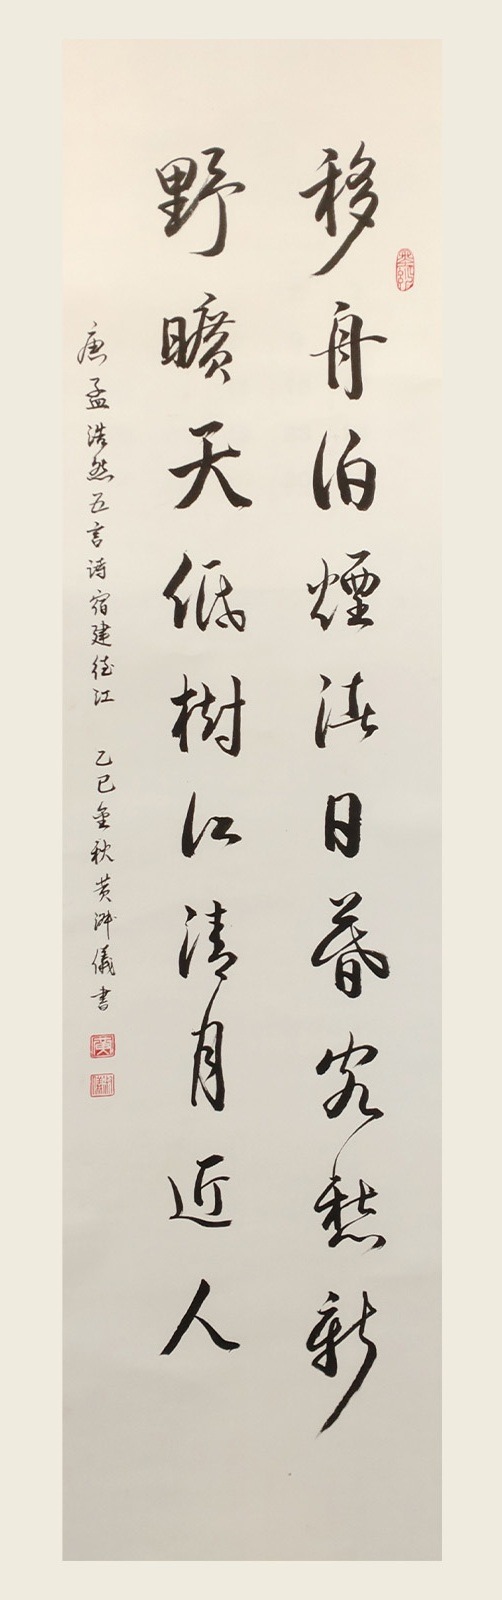 移舟泊煙渚日暮客愁新
野曠天低樹江清月近人
唐孟浩然五言诗宿建德江 乙巳金秋黄渊儀書